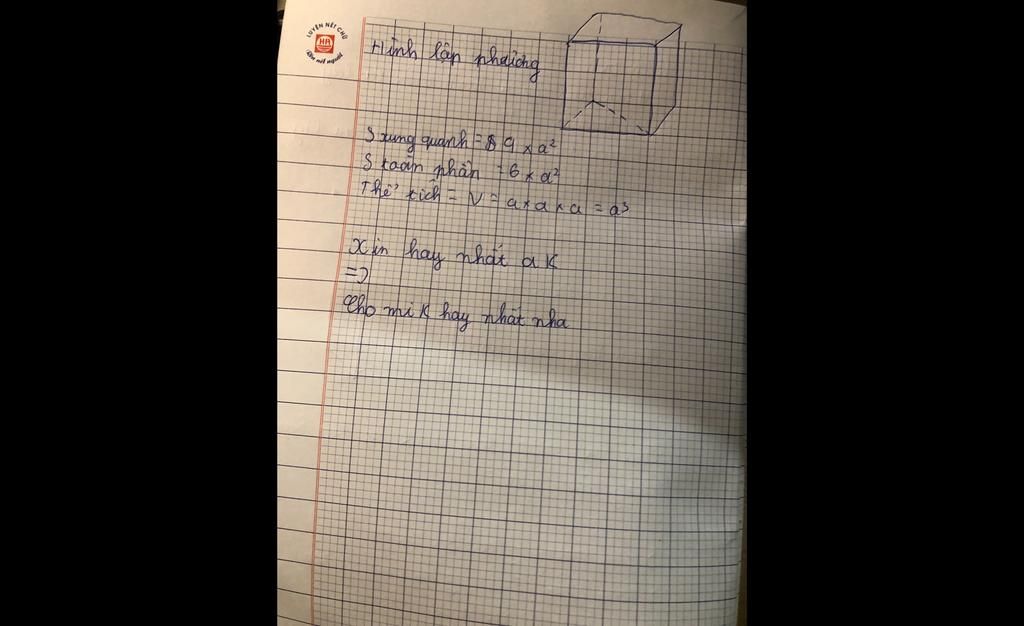 LUYỆN NÉT CHỮ
HA
Rèn nết người
Hình lập phương
S xung quanh = 4 x a²
S toàn phần = 6 x a²
Thể tích = V = a x a x a = a³
Xin hay nhất ạ K
=>
Cho mik hay nhất nha